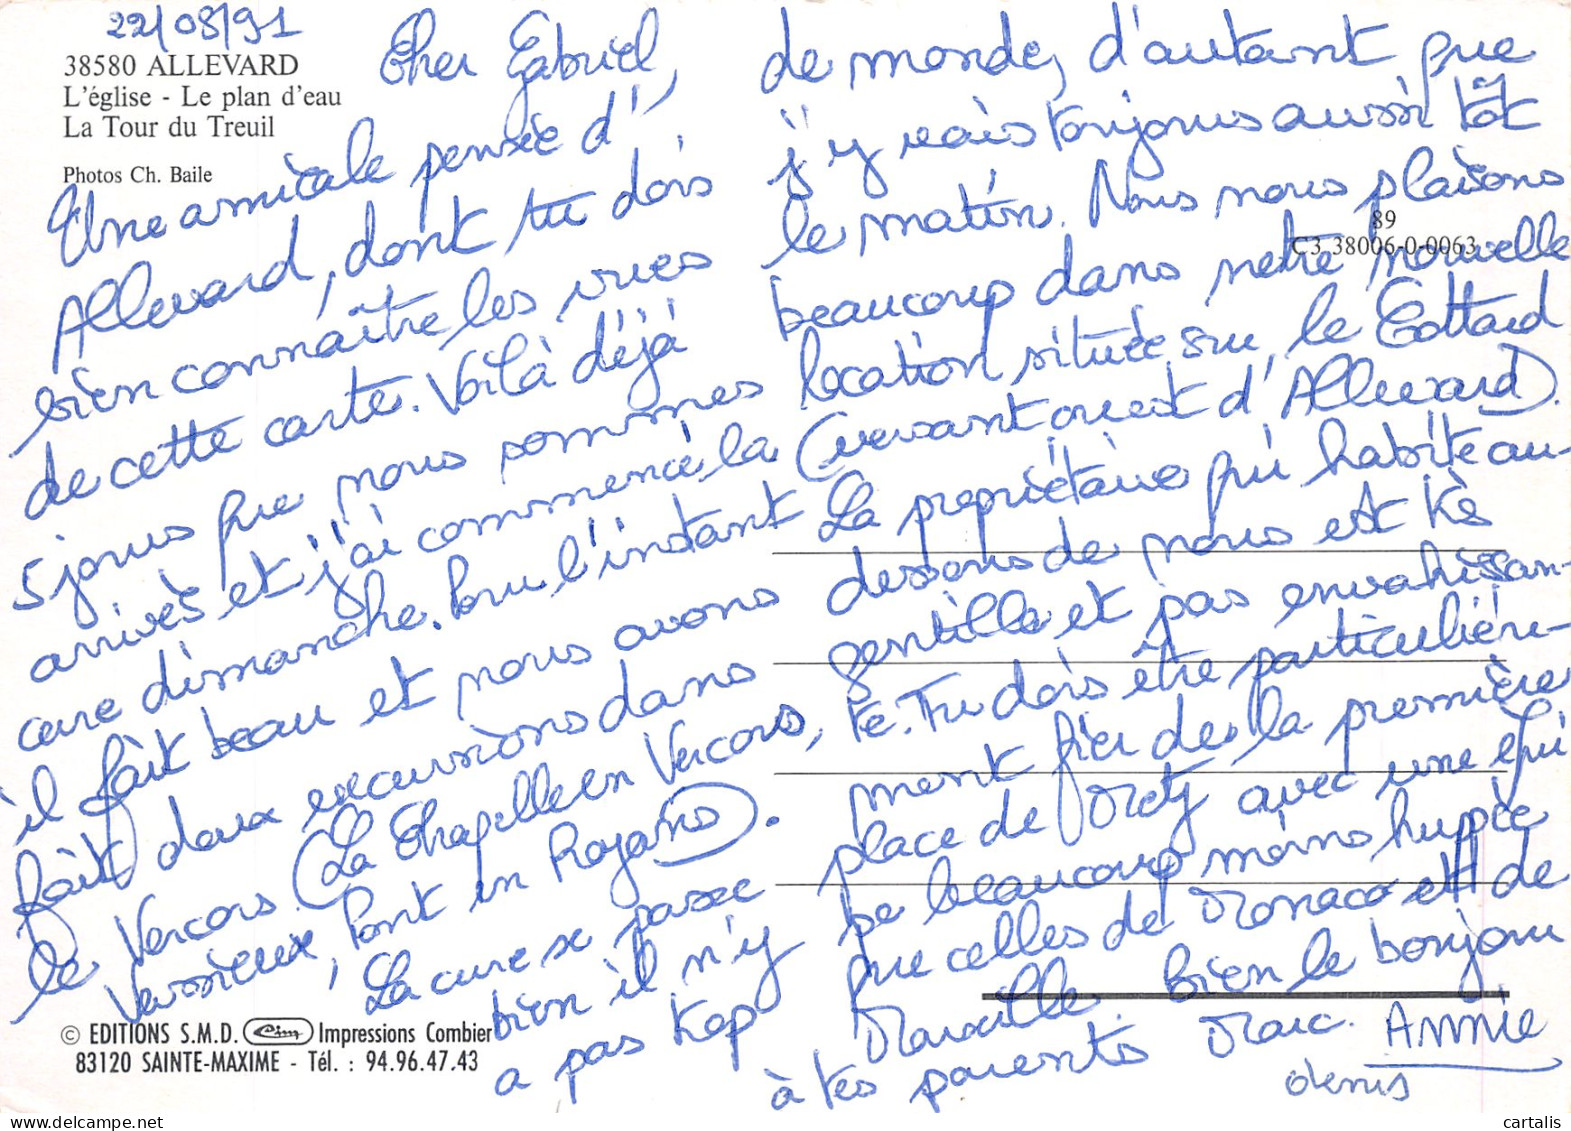 22/08/91
38580 ALLEVARD
L'église - Le plan d'eau
La Tour du Treuil
Photos Ch. Baile
Cher Gabriel,
Une amicale pensée d'
Allevard, dont tu dois
bien connaître les vues
de cette carte. Voilà déjà
5 jours que nous sommes
arrivés et j'ai commencé la
cure dimanche. Pour l'instant
il fait beau et nous avons
fait deux excursions dans
le Vercors (La Chapelle en Vercors,
Vassieux, Pont en Royans).
La cure se passe
bien il n'y
a pas trop
de monde, d'autant que
j'y vais toujours aussi tôt
le matin. Nous nous plaisons
beaucoup dans notre nouvelle
location située sur le Collard
(versant ouest d'Allevard).
La propriétaire qui habite au-
dessous de nous est très
gentille et pas envahissan-
te. Tu dois être particulière-
ment fier de la première
place de Metz avec une équi
pe beaucoup moins huppée
que celles de Monaco et de
Marseille. bien le bonjour
à tes parents Marc. ANNIE
denis
89
C3 38006-0-0063
© EDITIONS S.M.D. Cim Impressions Combier
83120 SAINTE-MAXIME - Tél. : 94.96.47.43
cartalis